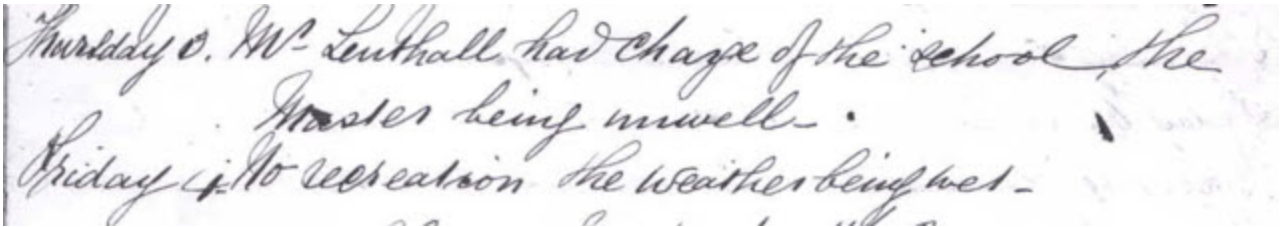 Thursday 3. Mr Lenthall had charge of the school, the
Master being unwell.
Friday 4. No recreation the weather being wet.